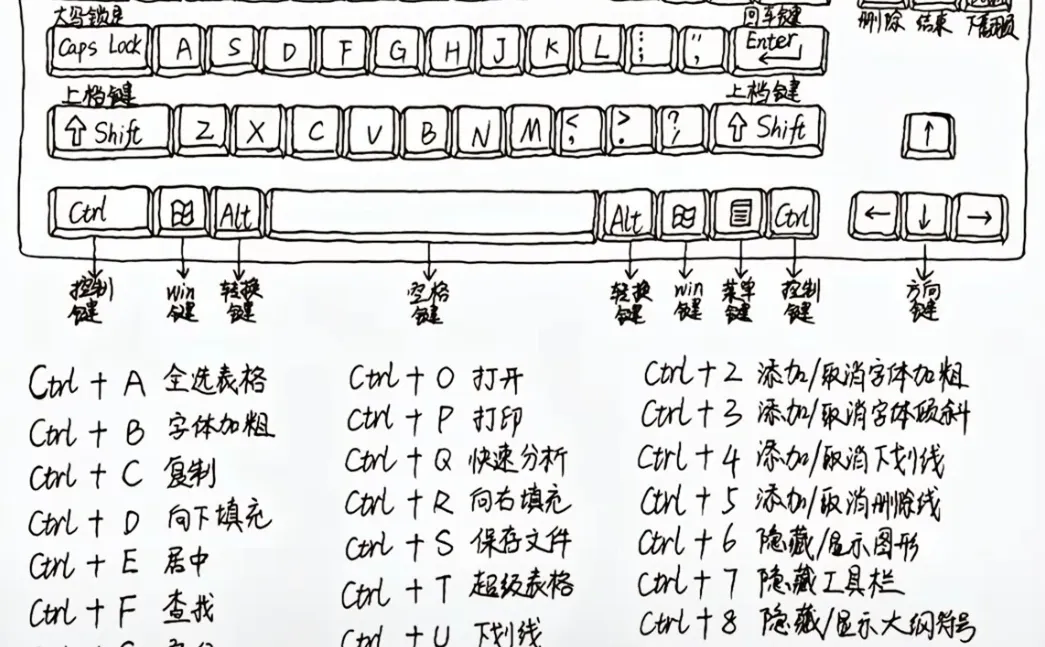 大写锁定 回车键 删除 结束 下翻页
Caps Lock A S D F G H J K L : ; " ' Enter
上档键 上档键
Shift Z X C V B N M < , > . ? / Shift ↑
Ctrl Alt Alt Ctrl ← ↓ →
控制键 win键 转换键 空格键 转换键 win键 菜单键 控制键 方向键
Ctrl + A 全选表格
Ctrl + B 字体加粗
Ctrl + C 复制
Ctrl + D 向下填充
Ctrl + E 居中
Ctrl + F 查找
Ctrl + O 打开
Ctrl + P 打印
Ctrl + Q 快速分析
Ctrl + R 向右填充
Ctrl + S 保存文件
Ctrl + T 超级表格
Ctrl + U 下划线
Ctrl + 2 添加/取消字体加粗
Ctrl + 3 添加/取消字体倾斜
Ctrl + 4 添加/取消下划线
Ctrl + 5 添加/取消删除线
Ctrl + 6 隐藏/显示图形
Ctrl + 7 隐藏工具栏
Ctrl + 8 隐藏/显示大纲符号